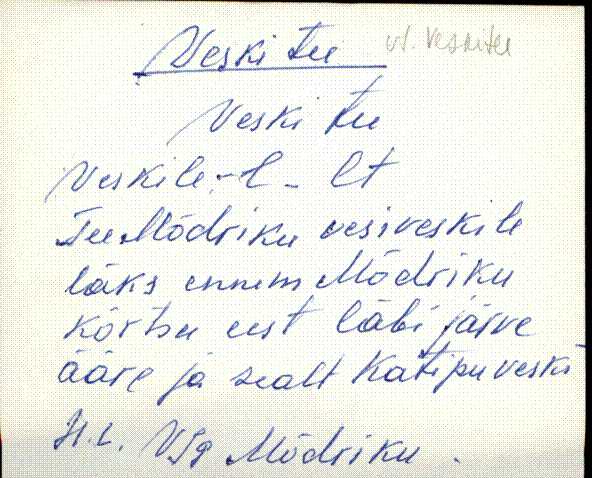 Veski tee vt. Veskitee
Veski tee
Veskile, -l - lt
Tee Mõdriku vesiveskile
läks ennem Mõdriku
kõrtsu eest läbi järve
ääre ja sealt Katipuveski
H.L. VJg Mõdriku.